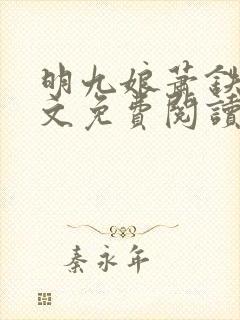 明九娘蕭鐵
文免費閱讀
秦永年